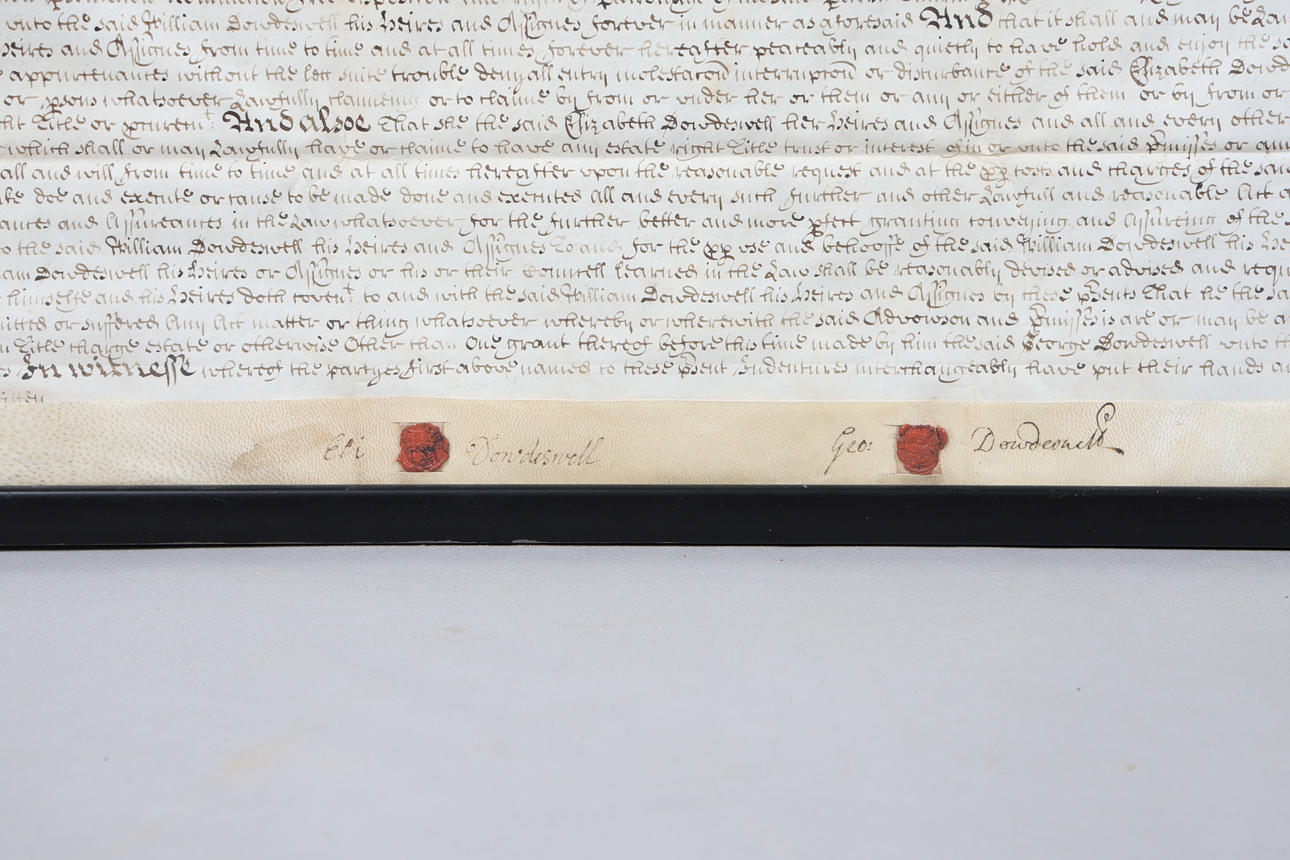 vnto the said William Dowdeswell his Heires and Assignes forever in manner as aforesaid And that it shall and may be Law
Heires and Assignes from time to time and at all times forever hereafter peaceably and quietly to have hold and enjoy the
appurtenances without the lett suite trouble denyall entry molestacon interrupcon or disturbance of the said Elizabeth Dowd
or psons whatsoever Lawfully claimeing or to claime by from or vnder her or them or any or either of them or by from or
Title or procuremt And alsoe That she the said Elizabeth Dowdeswell her Heires and Assignes and all and every other
which shall or may Lawfully have or claime to have any estate right Title trust or interest of in or vnto the said pmisses or any
all and will from time to time and at all times hereafter vpon the reasonable request and at the pp costs and charges of the said
doe and execute or cause to be made done and executed All and every such further and other Lawfull and reasonable Act
and Assureances in the Law whatsoever for the further better and more pfect granting conveying and Assureing of the
to the said William Dowdeswell his Heires and Assignes To and for the pp vse and behoofe of the said William Dowdeswell his He
am Dowdeswell his Heires or Assignes or his or their Councell learned in the Law shall be reasonably devised or advised and requ
himselfe and his Heires doth covent to and with the said William Dowdeswell his Heires and Assignes by these psents That he the sa
itted or suffered Any Act matter or thing whatsoever whereby or wherewith the said Advowson and pmisses is are or may be
Title charge estate or otherwise Other than One grant thereof before this time made by him the said George Dowdeswell vnto
In witnesse whereof the partyes first above named to these psent Indentures interchangeably have put their hands
itten
Eli Dowdeswell Geo: Dowdeswell